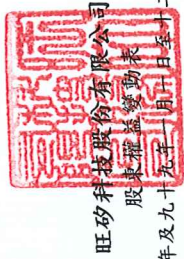 旺矽科技股份有限公司
股東權益變動表
年及九十九年一月一日至十二